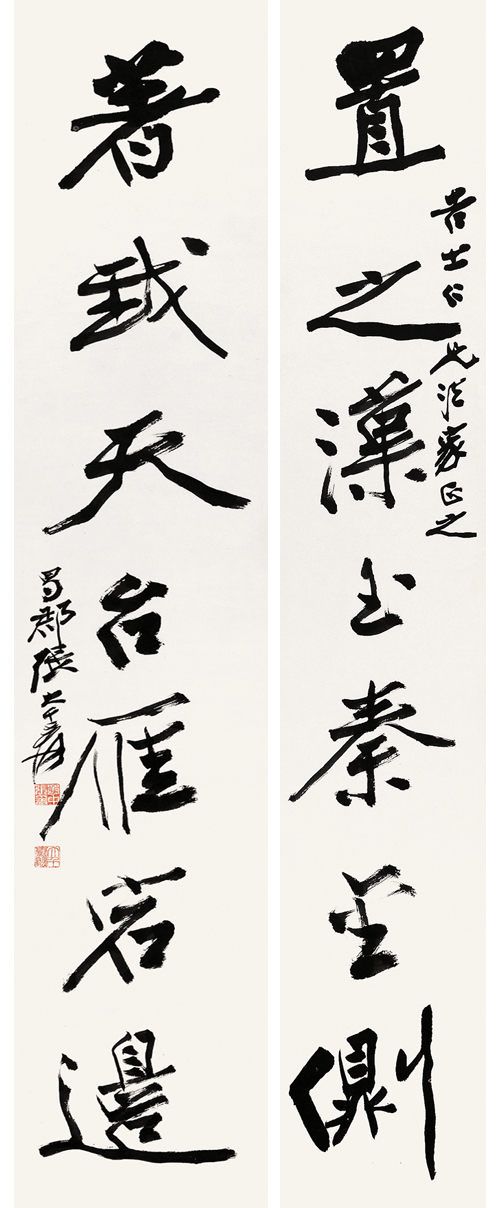 置之漢玉秦金側
士仁兄法家正之
著我天台雁宕邊
蜀郡張大千爰